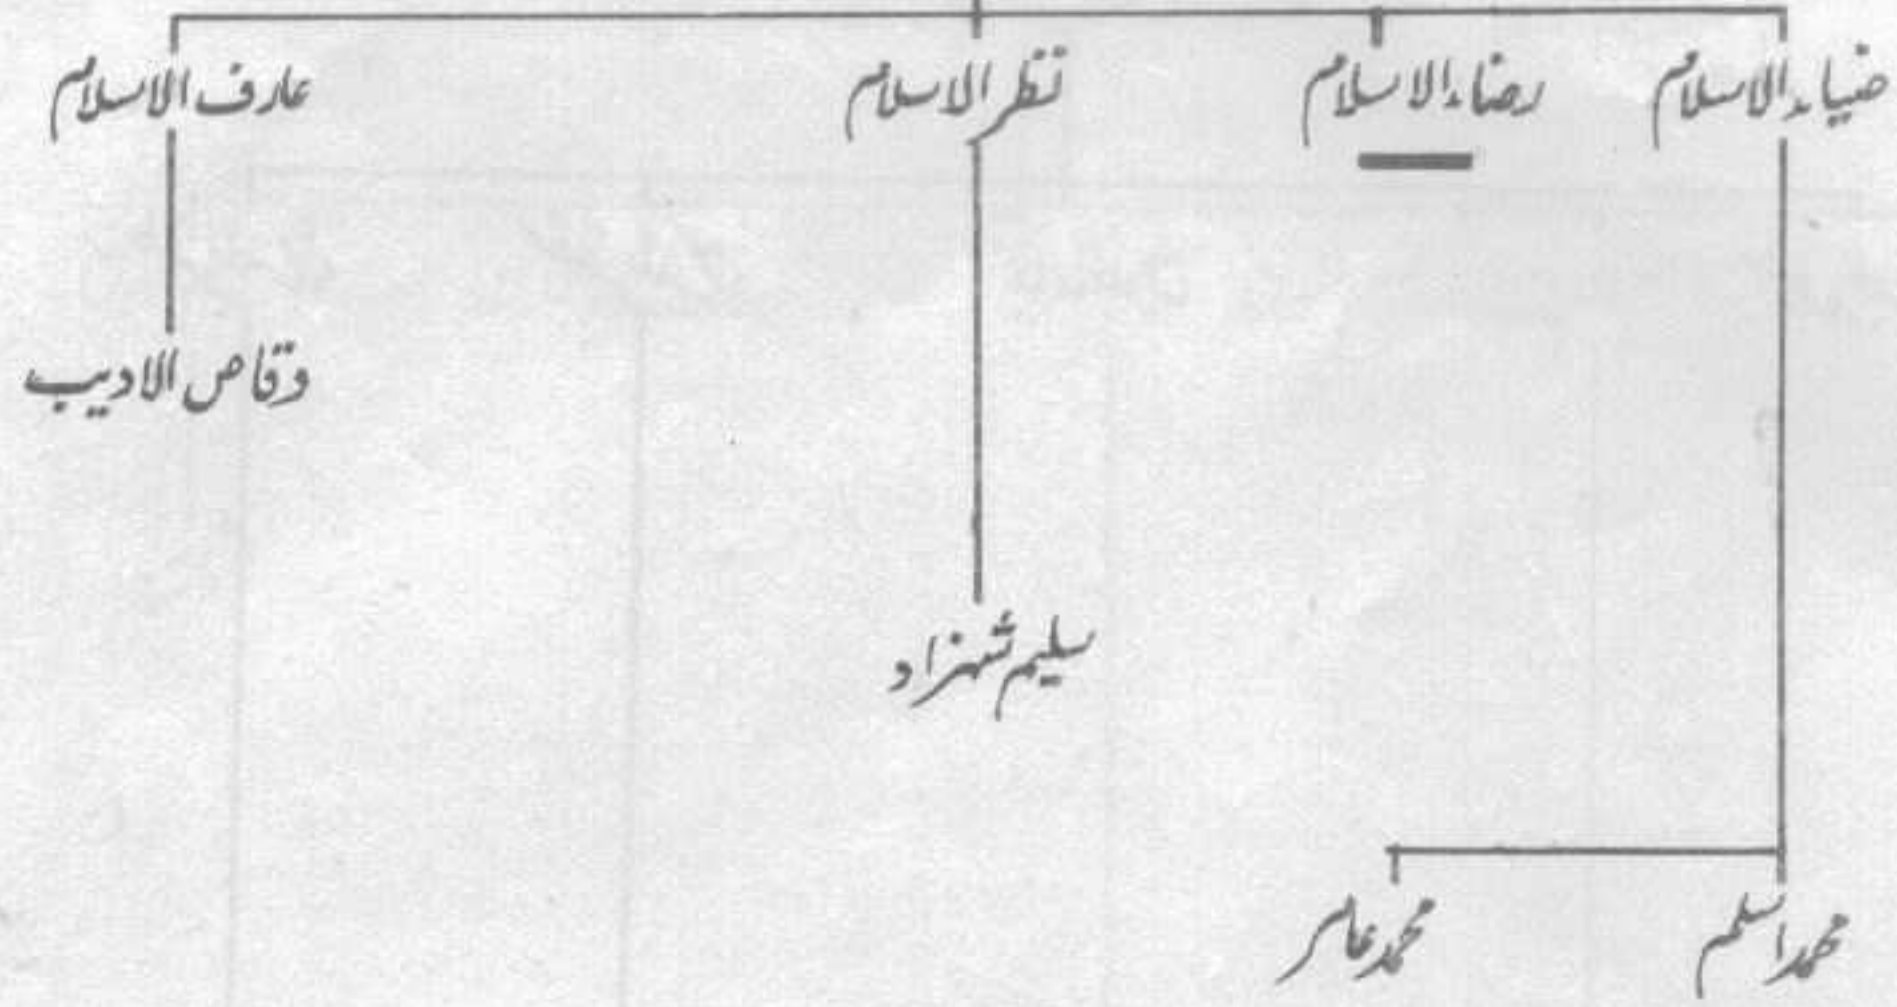 ضیاء الاسلام رضاء الاسلام نظر الاسلام عارف الاسلام
وقاص الادیب
سلیم شہزاد
محمد اسلم محمد عامر